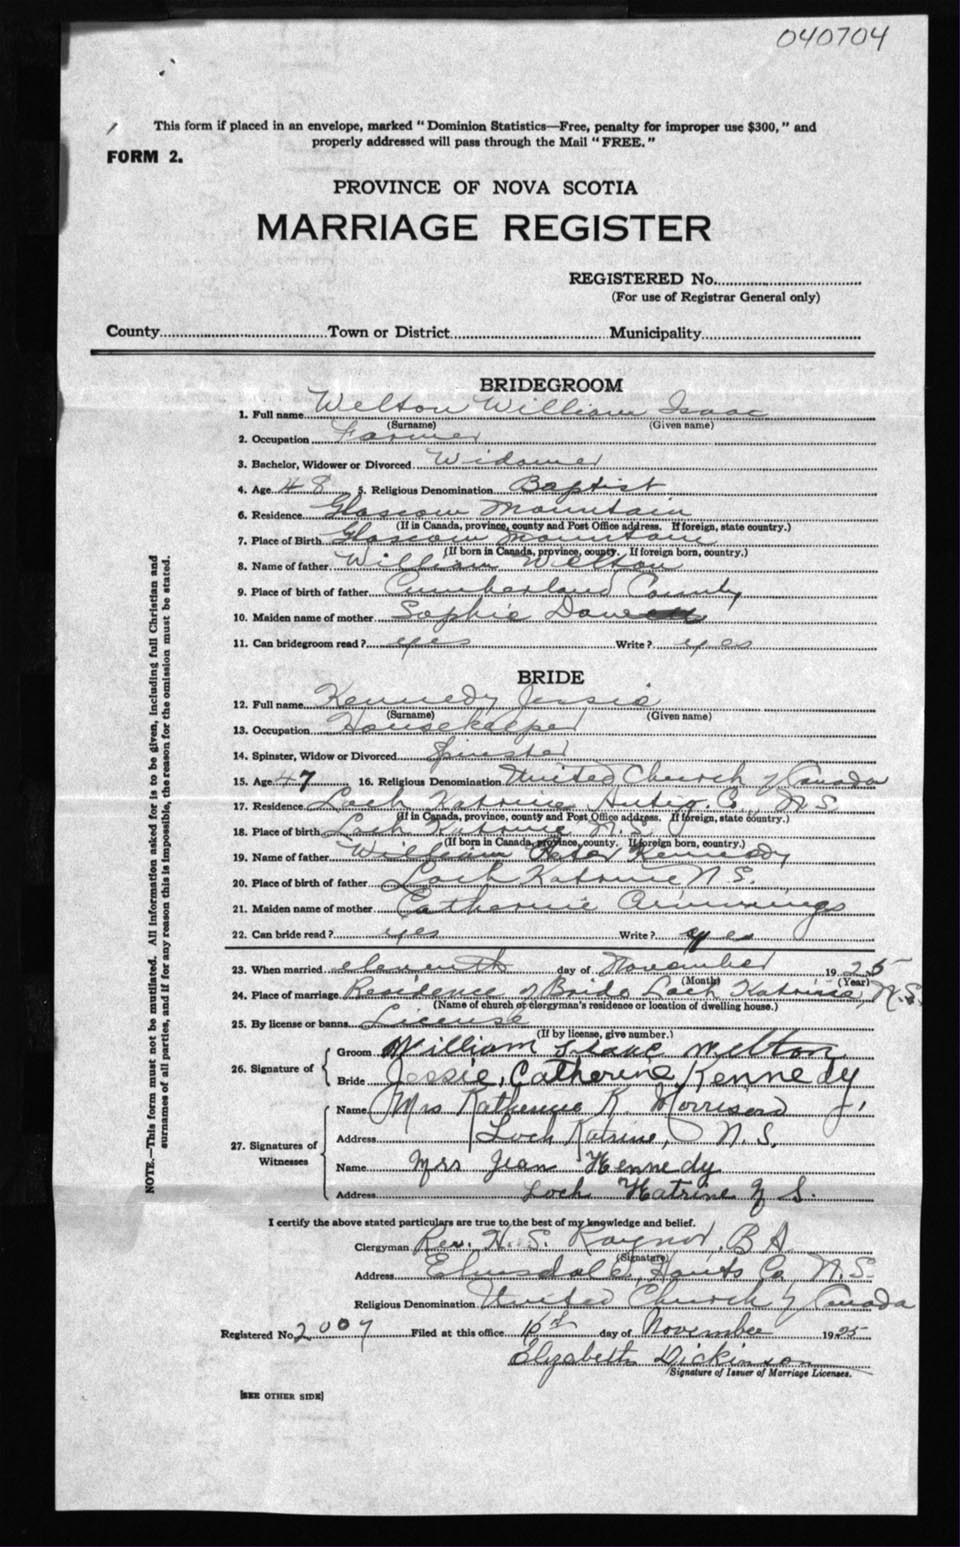 040704
This form if placed in an envelope, marked "Dominion Statistics—Free, penalty for improper use $300," and
properly addressed will pass through the Mail "FREE."
FORM 2.
PROVINCE OF NOVA SCOTIA
MARRIAGE REGISTER
REGISTERED No.
(For use of Registrar General only)
County Town or District Municipality
BRIDEGROOM
1. Full name Welton William Isaac
(Surname) (Given name)
2. Occupation Farmer
3. Bachelor, Widower or Divorced Widower
4. Age 48 5. Religious Denomination Baptist
6. Residence Glascow Mountain
(If in Canada, province, county and Post Office address. If foreign, state country.)
7. Place of Birth Glascow Mountain
(If born in Canada, province, county. If foreign born, country.)
8. Name of father William Welton
9. Place of birth of father Cumberland County
10. Maiden name of mother Sophie
11. Can bridegroom read? yes Write? yes
BRIDE
12. Full name Kennedy Jessie
(Surname) (Given name)
13. Occupation Housekeeper
14. Spinster, Widow or Divorced Spinster
15. Age 47 16. Religious Denomination United Church of Canada
17. Residence Loch Katrine Antig. Co., N.S.
(If in Canada, province, county and Post Office address. If foreign, state country.)
18. Place of birth Loch Katrine N.S.
(If born in Canada, province, county. If foreign born, country.)
19. Name of father William Peter Kennedy
20. Place of birth of father Loch Katrine N.S.
21. Maiden name of mother Catherine Cummings
22. Can bride read? yes Write? yes
23. When married eleventh day of November 1925
(Month) (Year)
24. Place of marriage Residence of Bride Loch Katrine, N.S.
(Name of church or clergyman's residence or location of dwelling house.)
25. By license or banns License
(If by license, give number.)
26. Signature of
Groom William Isaac Welton
Bride Jessie, Catherine Kennedy
27. Signatures of Witnesses
Name Mrs Katherine K. Morrison
Address Loch Katrine, N.S.
Name Mrs Jean Kennedy
Address Loch Katrine N S.
I certify the above stated particulars are true to the best of my knowledge and belief.
Clergyman Rev. H. S. Raynor, B A.
(Signature)
Address Elmsdale, Hants Co, N.S.
Religious Denomination United Church of Canada
Registered No 2007 Filed at this office day of November 1925
Elizabeth Dickinson
Signature of Issuer of Marriage Licenses.
[SEE OTHER SIDE]
NOTE.—This form must not be mutilated. All information asked for is to be given, including full Christian and
surnames of all parties, and if for any reason this is impossible, the reason for the omission must be stated.